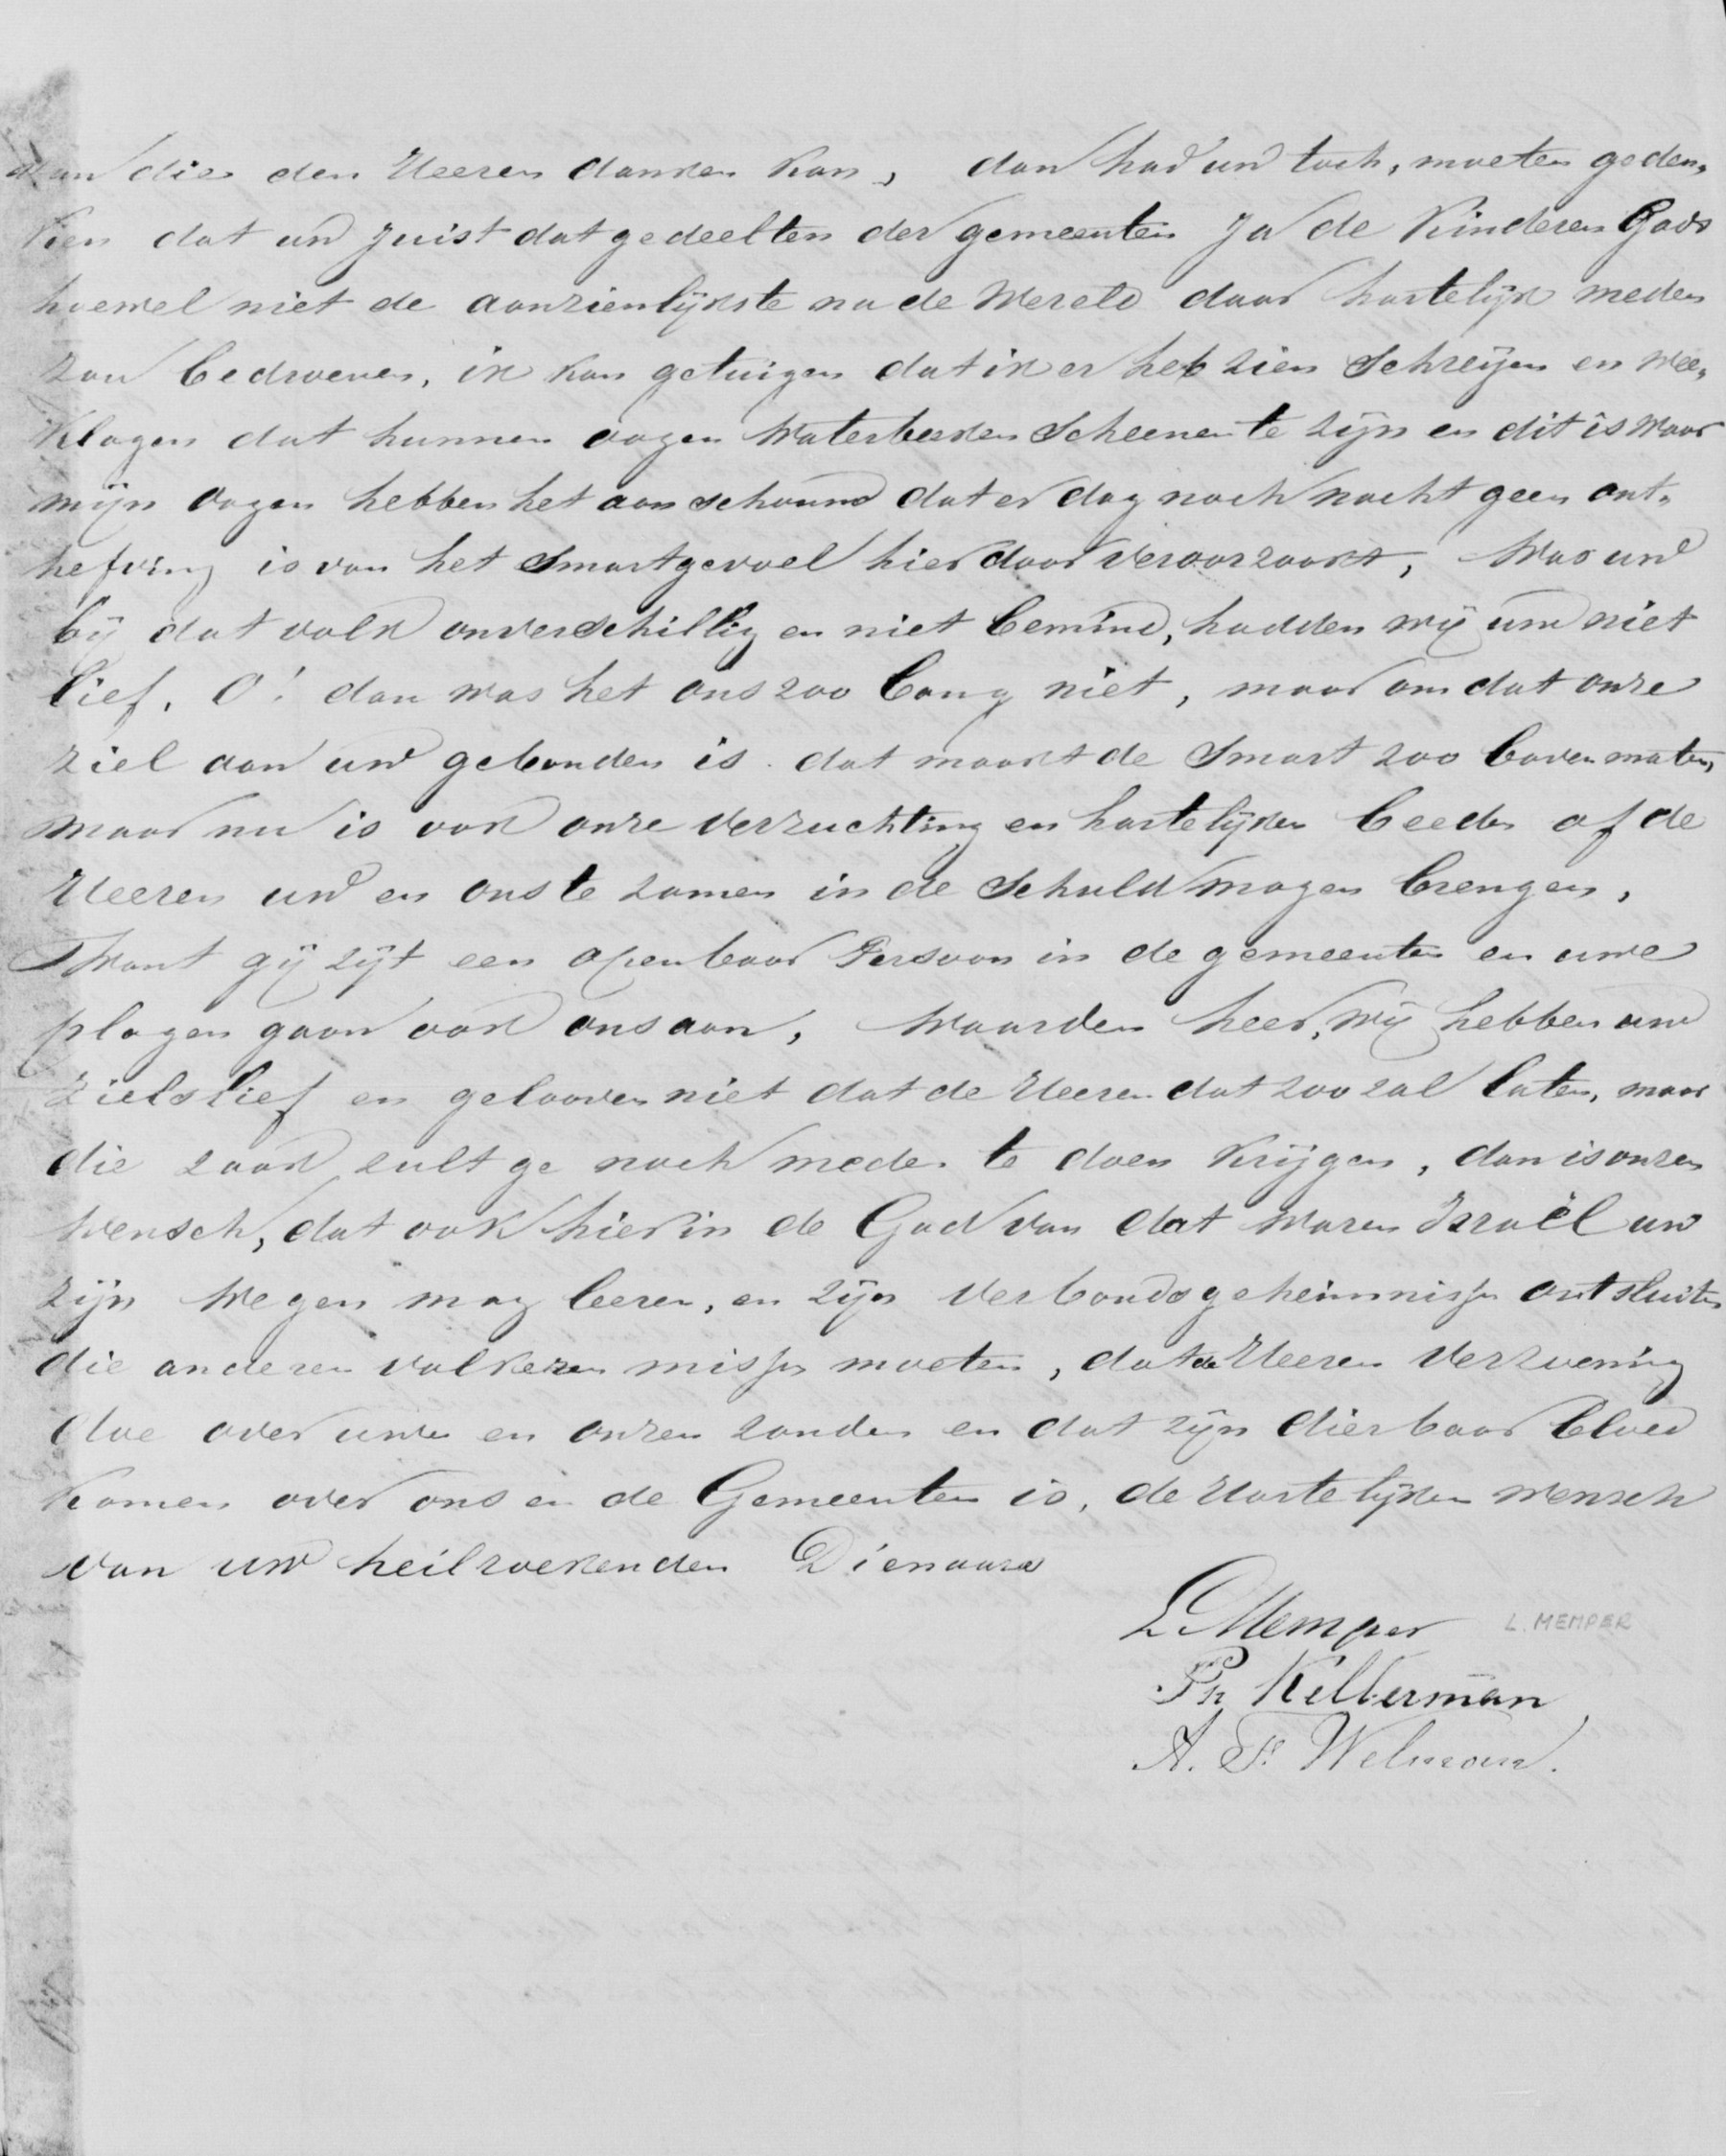 dan die den Heeren danken kan, dan had uw toch, moeten geden„
ken dat uw juist dat gedeelten der gemeenten Ja de Kinderen Gods
hoewel niet de aanzienlijkste na de Wereld daar hartelijk meden
zou bedroeven, ik kan getuigen dat ik er heb zien Schreijen en wee„
klagen dat hunnen oogen Waterbeeken Scheenen te zijn en dit is waar
mijn oogen hebben het aan schouwd dat er dag noch nacht geen ont„
heffing is van het Smartgevoel hier door veroorzaakt, Was uw
bij dat volk onverschillig en niet bemind, hadden wij uw niet
lief, O! dan was het ons zoo bang niet, maar om dat onze
ziel aan uw gebonden is. dat maakt de Smart zoo boven maten,
maar nu is ook onze verzuchting en hartelijken beeden of de
Heeren uw en ons te zamen in de Schuld mogen brengen,
Want gij zijt een openbaar Persoon in de gemeenten en uwe
plagen gaan ook ons aan, Waarden heer, wij hebben uw
zielslief en gelooven niet dat de Heeren dat zoo zal laten, maar
die zaak zult ge noch meden te doen krijgen, dan is onzen
wensch, dat ook hier in de God van dat waren Israël uw
zijn wegen mag leeren, en zijn verbondsgeheimnissen ontsluiten
die anderen volkeren missen moeten, dat de Heeren verzoening
doe over uwe en onzen zonden en dat zijn dierbaar bloed
komen over ons en de Gemeenten is, de Hartelijken wensch
van uw heilzoekenden Dienaars
L Memper L. MEMPER
Ph Kelderman
A. Welman.